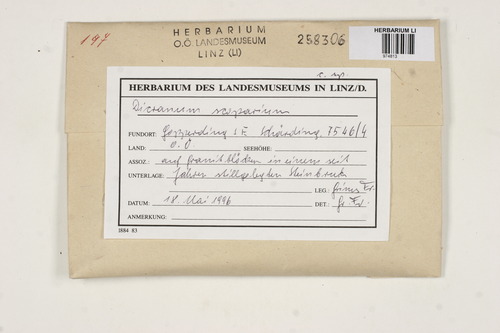 197
HERBARIUM
O.Ö. LANDESMUSEUM
LINZ (LI)
258306
HERBARIUM LI
974613
c. sp.
HERBARIUM DES LANDESMUSEUMS IN LINZ/D.
Dicranum scoparium
FUNDORT: Gopperding SE Schärding, 7546/4
LAND: O.Ö SEEHÖHE:
ASSOZ.: auf Granitblöcken in einem seit
UNTERLAGE: Jahren stillgelegten Steinbruch
LEG.: Grims Fr.
DATUM: 18. Mai 1996 DET.: Gr Fr.
ANMERKUNG:
I884 83